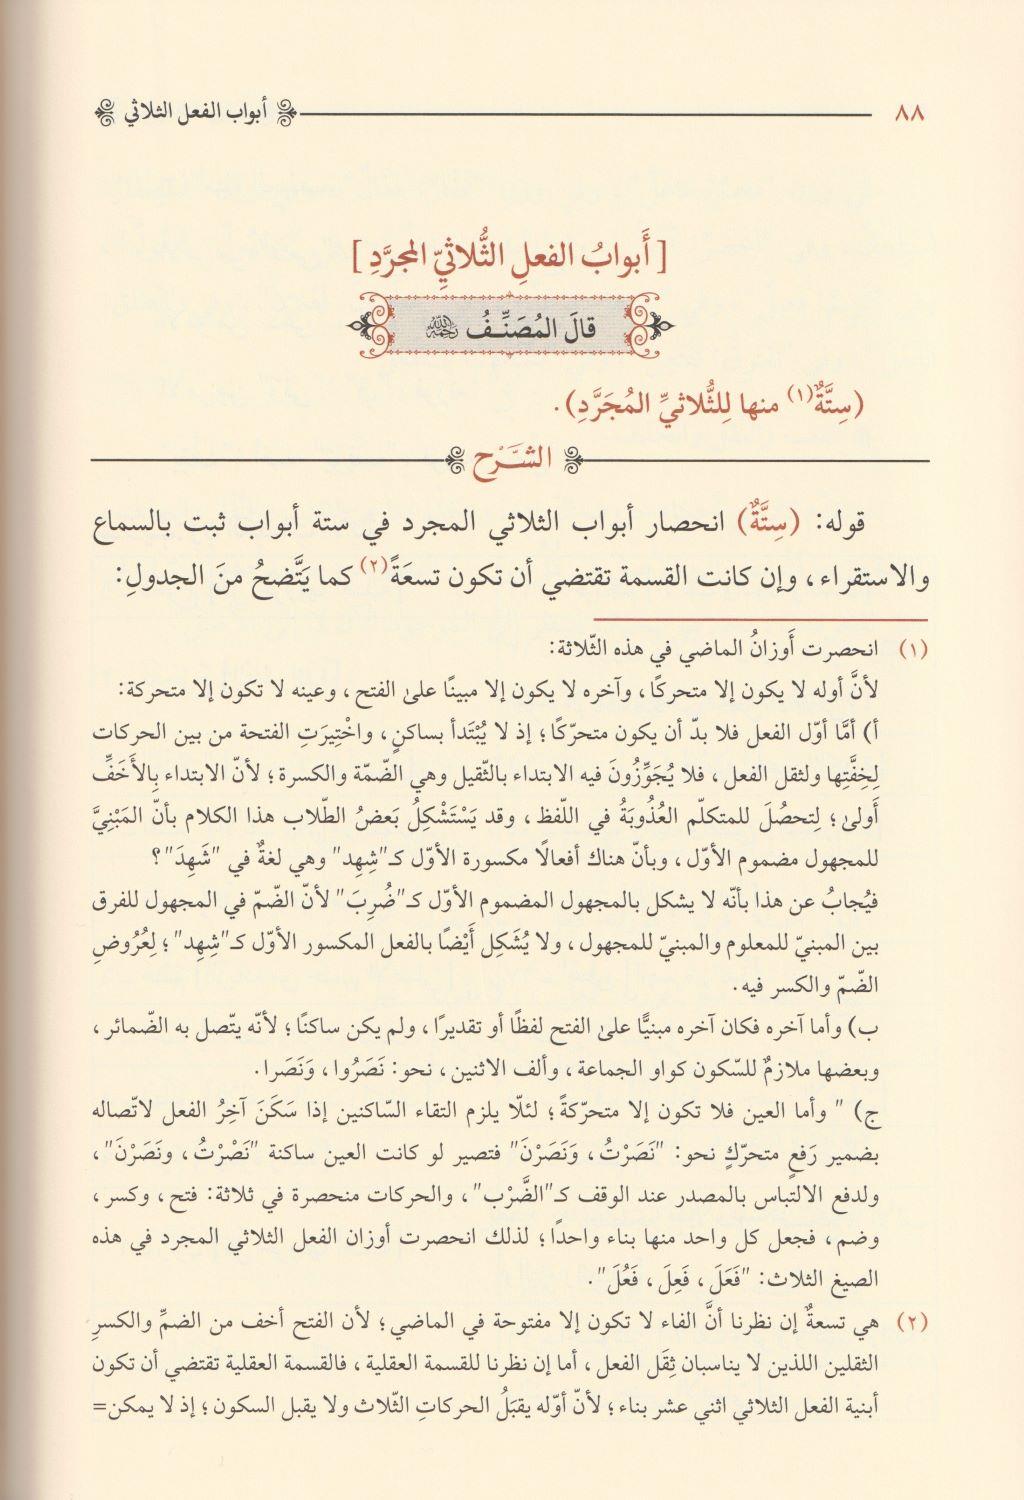 ٨٨
أبواب الفعل الثلاثي
[ أَبوابُ الفعلِ الثُّلاثيِّ المجرَّدِ ]
قالَ المُصَنِّفُ رحمه الله
(سِتَّةٌ(١) منها لِلثُّلاثيِّ المُجَرَّدِ).
الشَّرْح
قوله: (سِتَّةٌ) انحصار أبواب الثلاثي المجرد في ستة أبواب ثبت بالسماع
والاستقراء، وإن كانت القسمة تقتضي أن تكون تسعَةً(٢) كما يَتَّضحُ منَ الجدولِ:
(١) انحصرت أَوزانُ الماضي في هذه الثّلاثة:
لأنَّ أوله لا يكون إلا متحركًا، وآخره لا يكون إلا مبينًا علىٰ الفتح، وعينه لا تكون إلا متحركة:
أ) أمَّا أوّل الفعل فلا بدّ أن يكون متحرّكًا؛ إذ لا يُبْتَدأ بساكنٍ، واخْتِيرَتِ الفتحة من بين الحركات
لِخِفَّتِها ولثقل الفعل، فلا يُجَوِّزُونَ فيه الابتداء بالثّقيل وهي الضّمّة والكسرة؛ لأنّ الابتداء بِالأَخَفِّ
أَولىٰ؛ لِتحصُلَ للمتكلّم العُذُوبَةُ في اللّفظ، وقد يَسْتَشْكِلُ بَعضُ الطّلاب هذا الكلام بأنّ المَبْنِيَّ
للمجهول مضموم الأوّل، وبأنّ هناك أفعالًا مكسورة الأوّل كـ"شِهِد" وهي لغةٌ في "شَهِدَ"؟
فيُجابُ عن هذا بأنّه لا يشكل بالمجهول المضموم الأوّل كـ"ضُرِبَ" لأنّ الضّمّ في المجهول للفرق
بين المبنيّ للمعلوم والمبنيّ للمجهول، ولا يُشَكِل أَيْضًا بالفعل المكسور الأوّل كـ"شِهِد"؛ لِعُرُوضِ
الضّمّ والكسر فيه.
ب) وأما آخره فكان آخره مبنيًّا علىٰ الفتح لفظًا أو تقديرًا، ولم يكن ساكنًا؛ لأنّه يتّصل به الضّمائر،
وبعضها ملازمٌ للسّكون كواو الجماعة، وألف الاثنين، نحو: نَصَرُوا، وَنَصَرا.
ج) " وأما العين فلا تكون إلا متحرّكةً؛ لئلّا يلزم التقاء السّاكنين إذا سَكَنَ آخِرُ الفعل لاتّصاله
بضمير رَفعٍ متحرّكٍ نحو: "نَصَرْتُ، وَنَصَرْنَ" فتصير لو كانت العين ساكنة "نَصْرْتُ، ونَصْرْنَ"،
ولدفع الالتباس بالمصدر عند الوقف كـ"الضَّرْب"، والحركات منحصرة في ثلاثة: فتح، وكسر،
وضم، فجعل كل واحد منها بناء واحدًا؛ لذلك انحصرت أوزان الفعل الثلاثي المجرد في هذه
الصيغ الثلاث: "فَعَلَ، فَعِلَ، فَعُلَ".
(٢) هي تسعةٌ إن نظرنا أنَّ الفاء لا تكون إلا مفتوحة في الماضي؛ لأن الفتح أخف من الضمِّ والكسرِ
الثقلين اللذين لا يناسبان ثِقَل الفعل، أما إن نظرنا للقسمة العقلية، فالقسمة العقلية تقتضي أن تكون
أبنية الفعل الثلاثي اثني عشر بناء؛ لأنّ أوّله يقبَلُ الحركاتِ الثّلاث ولا يقبل السكون؛ إذ لا يمكن=